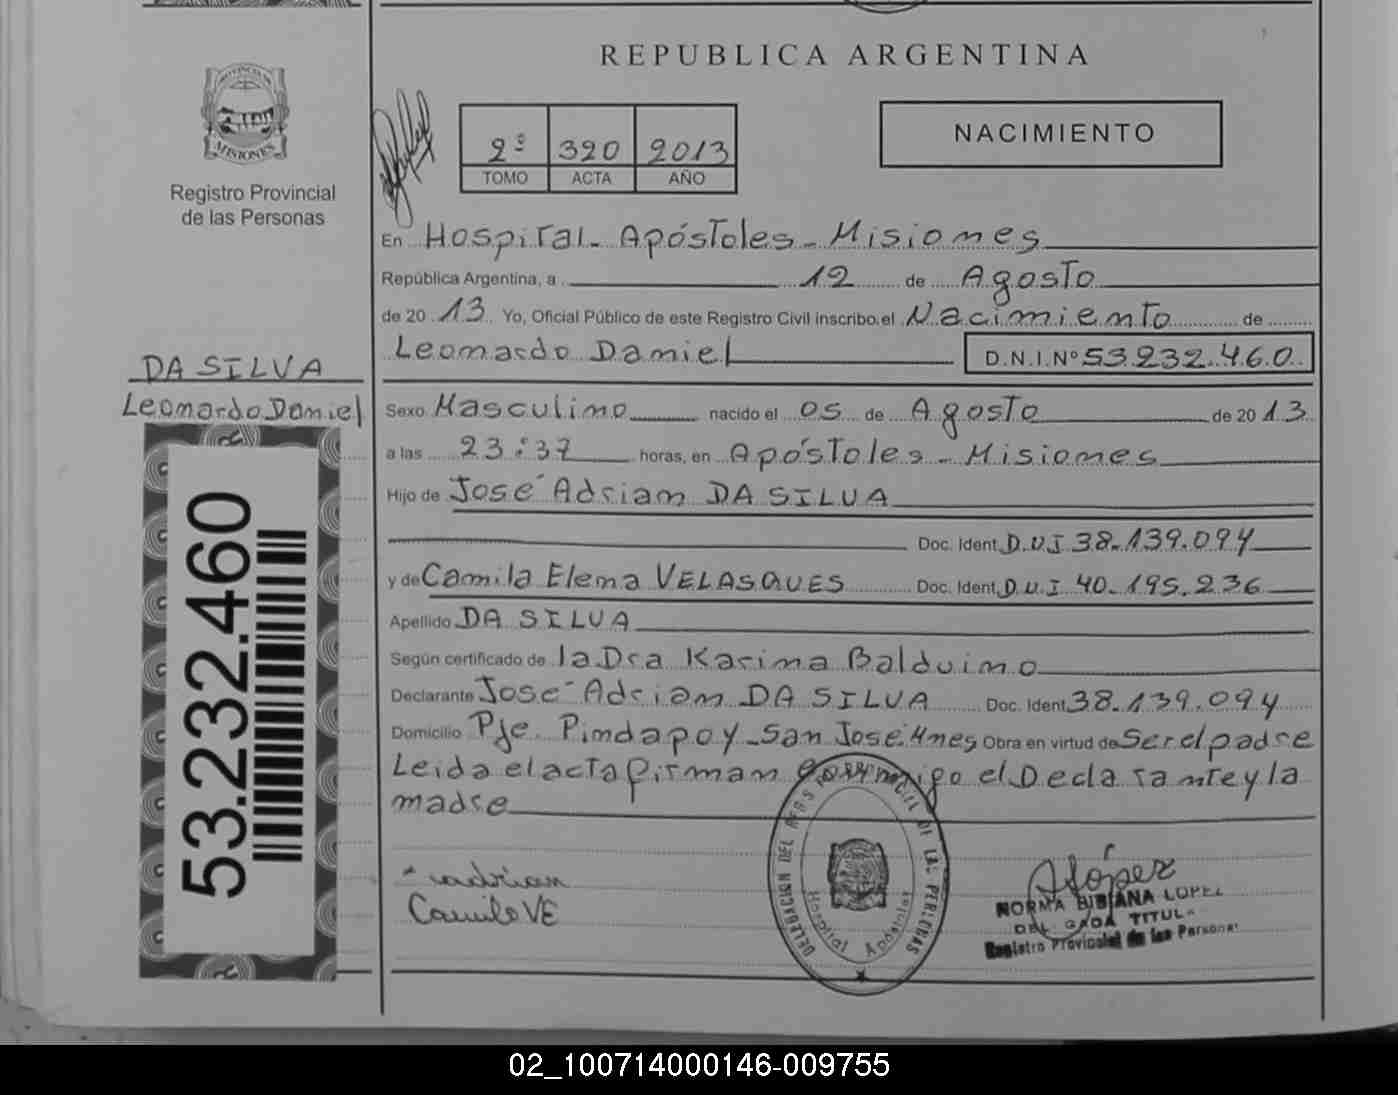 REPUBLICA ARGENTINA
PROVINCIA DE
MISIONES
Registro Provincial
de las Personas
2º 320 2013
TOMO ACTA AÑO
NACIMIENTO
En Hospital - Apóstoles - Misiones
República Argentina, a 12 de Agosto
de 20 13 Yo, Oficial Público de este Registro Civil inscribo el Nacimiento de
Leonardo Daniel D.N.I.Nº 53.232.460
DA SILVA
Leonardo Daniel
53.232.460
Sexo Masculino nacido el 05 de Agosto de 20 13
a las 23:37 horas, en Apóstoles - Misiones
Hijo de José Adrian DA SILVA
Doc. Ident. D.U.I 38.139.094
y de Camila Elena VELASQUES Doc. Ident. D.U.I. 40.195.236
Apellido DA SILVA
Según certificado de la Dra Karina Balduino
Declarante José Adrian DA SILVA Doc. Ident. 38.139.094
Domicilio Pje. Pindapoy - San José Mnes Obra en virtud de Ser el padre
Leida el acta firman conmigo el Declarante y la
madre
adrian
Camila VE
DELEGACION DEL REG. PROVINCIAL DE LAS PERSONAS
Hospital Apóstoles
López
NORMA BIBIANA LOPEZ
DELEGADA TITULAR
Registro Provincial de las Personas
02_100714000146-009755